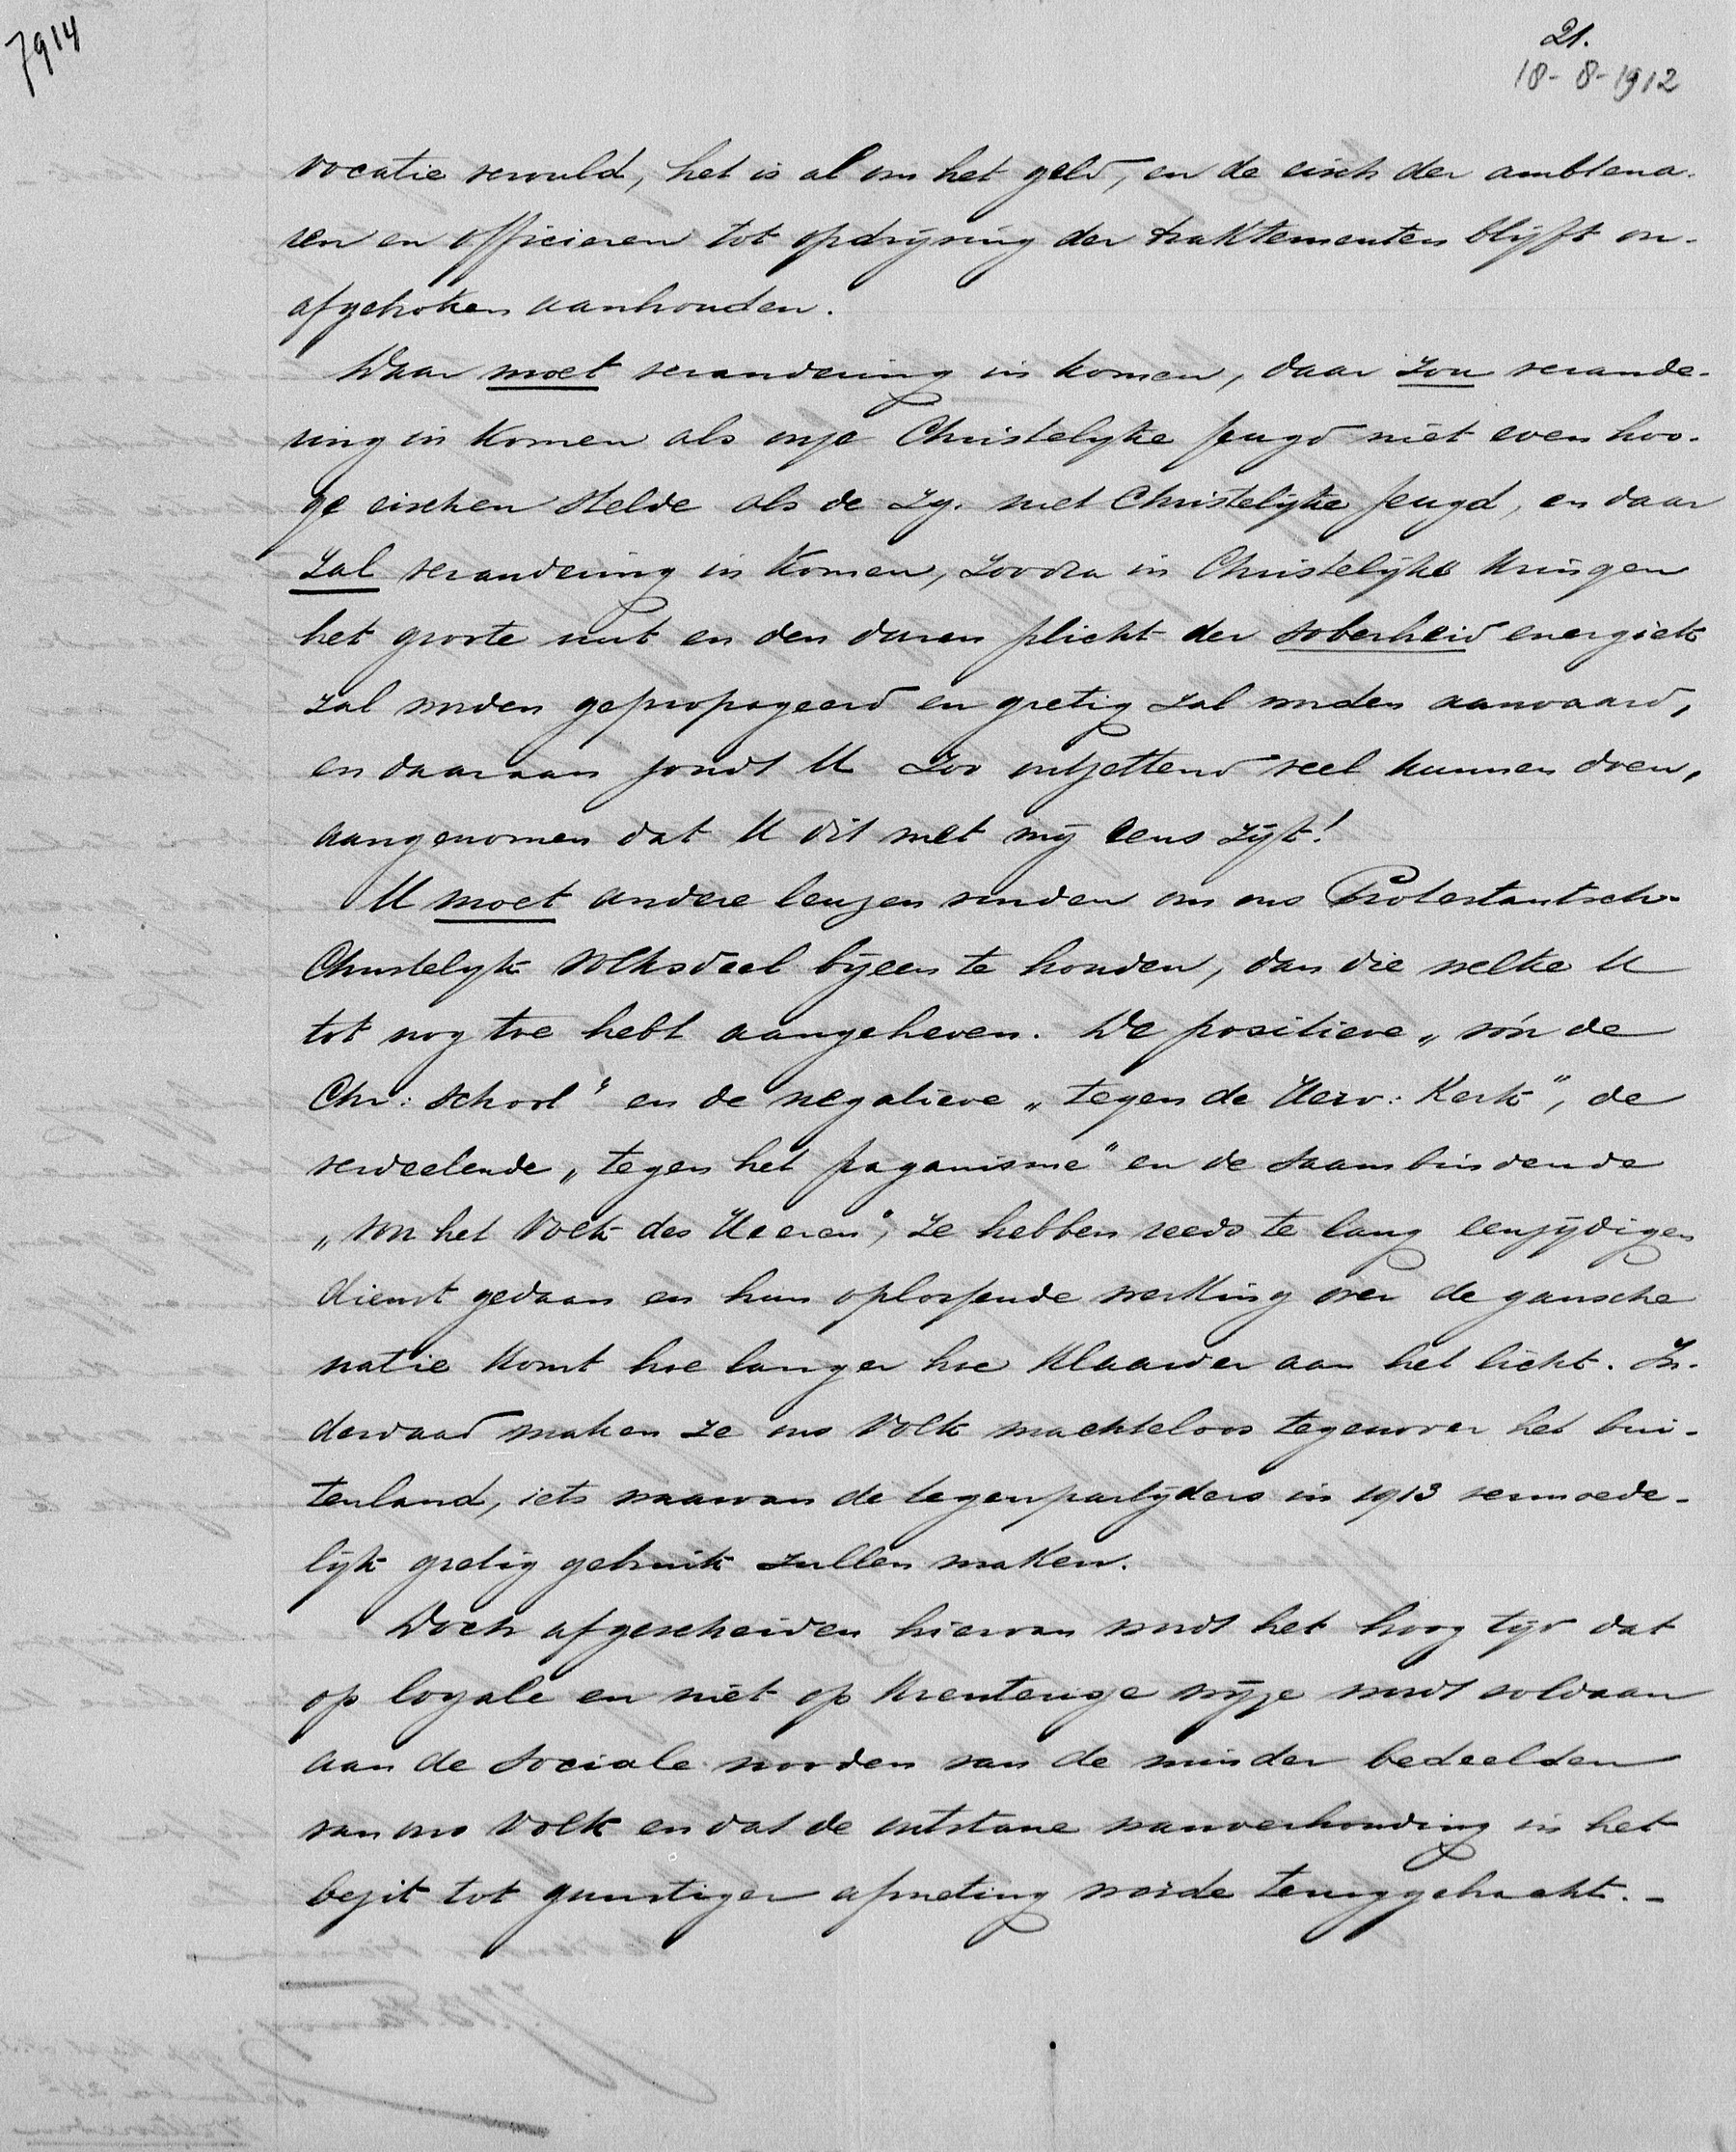 7914
21.
18-8-1912
vocatie vervuld, het is al om het geld, en de eisch der ambtena-
ren en officieren tot opdrijving der traktementen blijft on-
afgebroken aanhouden.
Daar moet verandering in komen, daar zou verande-
ring in komen als onze Christelijke jeugd niet even hoo-
ge eischen stelde als de zg. niet Christelijke jeugd, en daar
zal verandering in komen, zoodra in Christelijke kringen
het groote nut en den duren plicht der soberheid energiek
zal worden gepropageerd en gretig zal worden aanvaard,
en daaraan zoudt U zoo ontzettend veel kunnen doen,
aangenomen dat U dit met mij eens zijt!
U moet andere leuzen vinden om ons Protestantsch-
Christelijk volksdeel bijeen te houden, dan die welke U
tot nog toe hebt aangeheven. De positieve „vóór de
Chr: school" en de negatieve „tegen de Herv: Kerk", de
verdeelende „tegen het paganisme" en de saambindende
„voor het Volk des Heeren", ze hebben reeds te lang eenzijdigen
dienst gedaan en hun oplossende werking over de gansche
natie komt hoe langer hoe klaarder aan het licht. In-
derdaad maken ze ons Volk machteloos tegenover het bui-
tenland, iets waarvan de tegenpartijders in 1913 vermoede-
lijk gretig gebruik zullen maken.
Doch afgescheiden hiervan wordt het hoog tijd dat
op loyale en niet op krenterige wijze wordt voldaan
aan de sociale nooden van de minder bedeelden
van ons Volk en dat de ontstane wanverhouding in het
bezit tot gunstiger afmeting worde teruggebracht.-